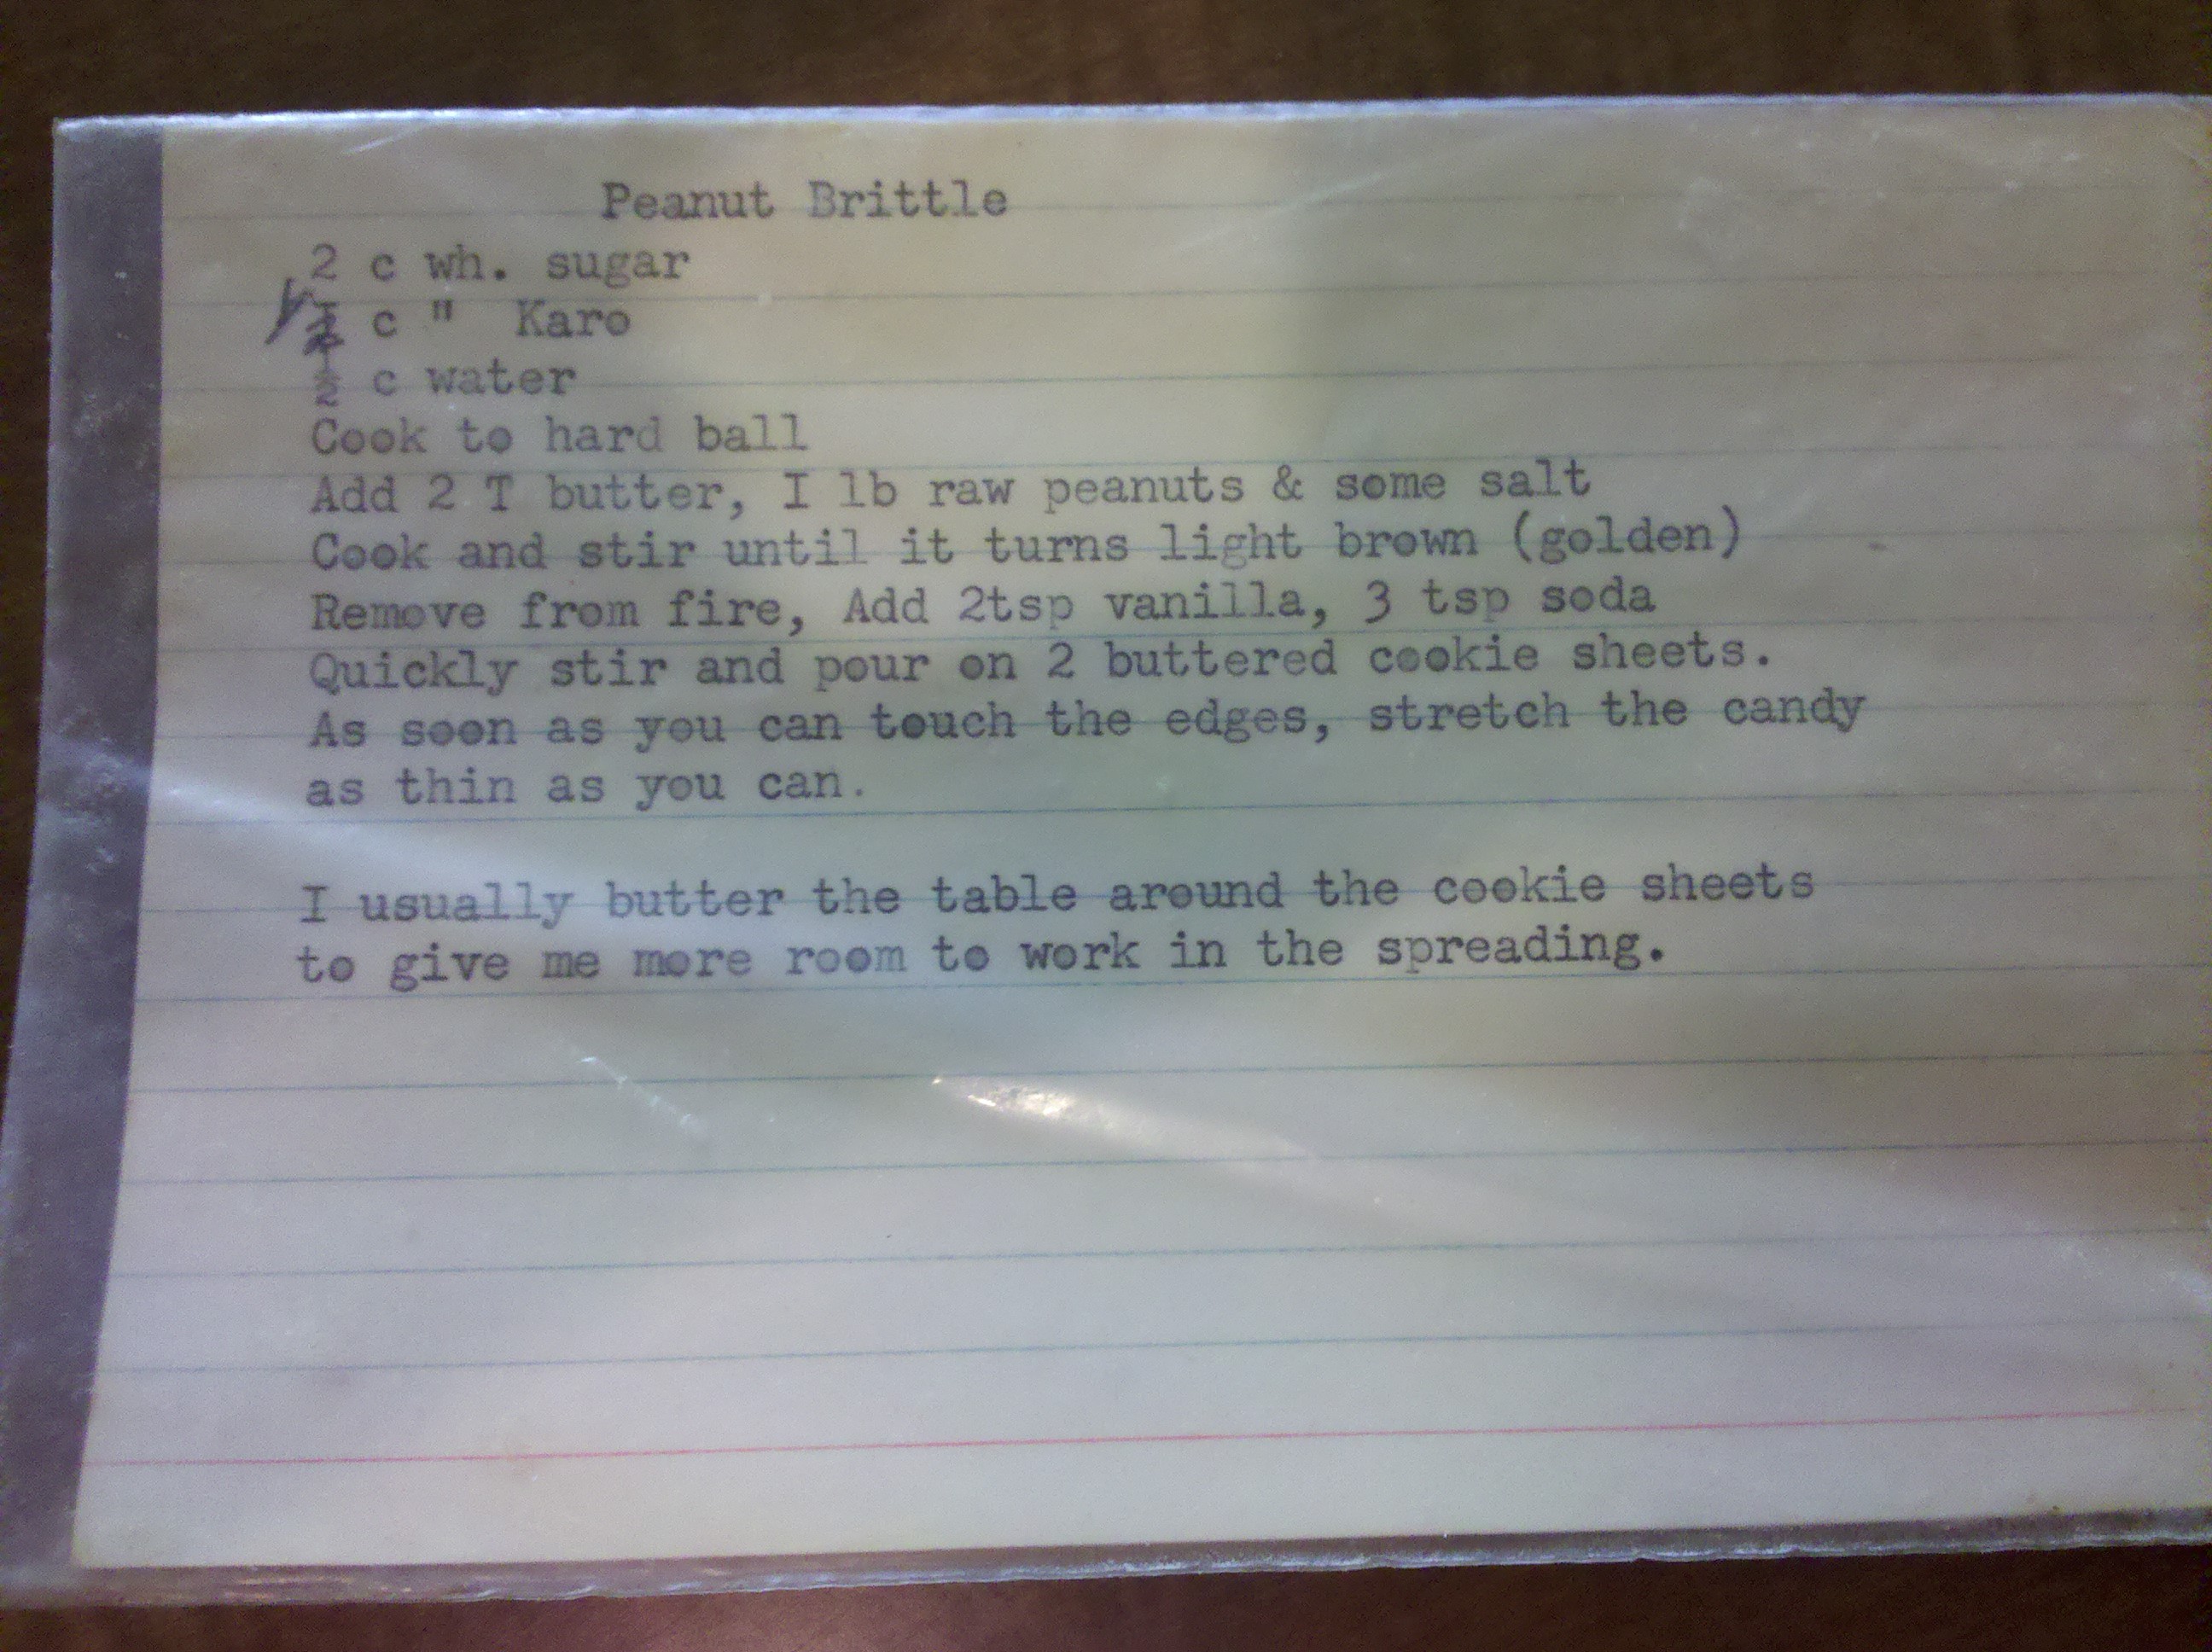 Peanut Brittle
2 c wh. sugar
c " Karo
½ c water
Cook to hard ball
Add 2 T butter, I lb raw peanuts & some salt
Cook and stir until it turns light brown (golden)
Remove from fire, Add 2tsp vanilla, 3 tsp soda
Quickly stir and pour on 2 buttered cookie sheets.
As soon as you can touch the edges, stretch the candy
as thin as you can.
I usually butter the table around the cookie sheets
to give me more room to work in the spreading.